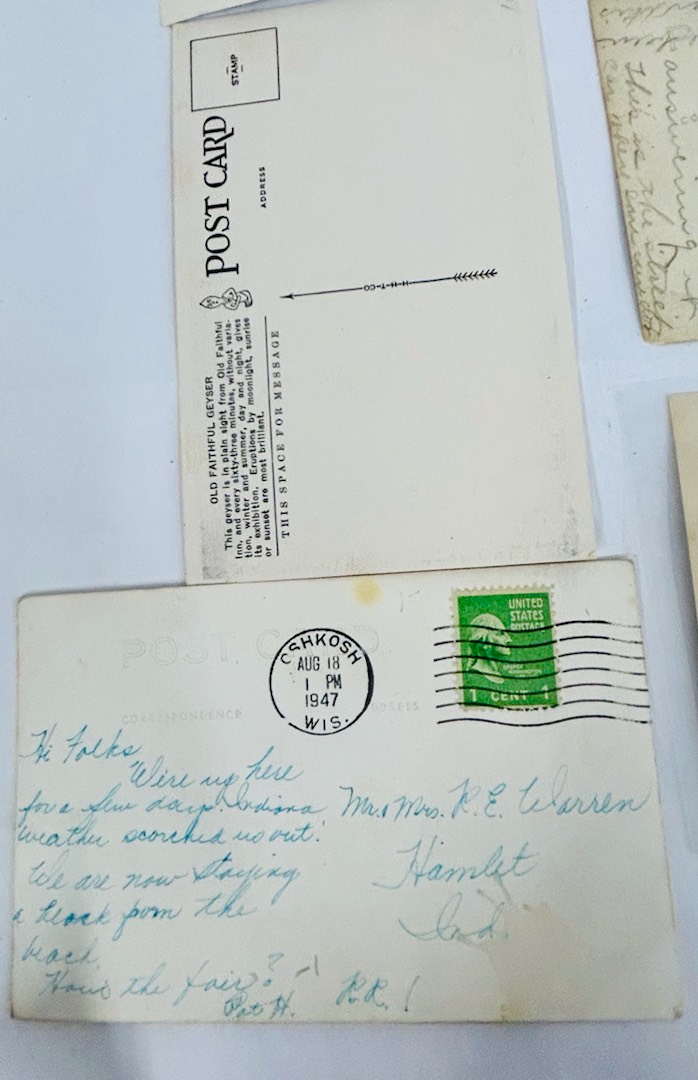 STAMP
POST CARD
ADDRESS
H-H-T-CO
OLD FAITHFUL GEYSER
This geyser is in plain sight from Old Faithful
Inn, and every sixty-three minutes, without varia-
tion, winter and summer, day and night, gives
its exhibition. Eruptions by moonlight, sunrise
or sunset are most brilliant.
THIS SPACE FOR MESSAGE
answering it
This is the
POST CARD
CORRESPONDENCE
ADDRESS
OSHKOSH
AUG 18
1 PM
1947
WIS.
UNITED
STATES
POSTAGE
GEORGE WASHINGTON
1 CENT 1
Hi Folks
Were up here
for a few days. Indiana
weather scorched us out.
We are now staying
a block from the
beach.
How's the fair?
Pat H.
Mr. & Mrs. R. E. Warren
Hamlet
Ind.
R.R. 1